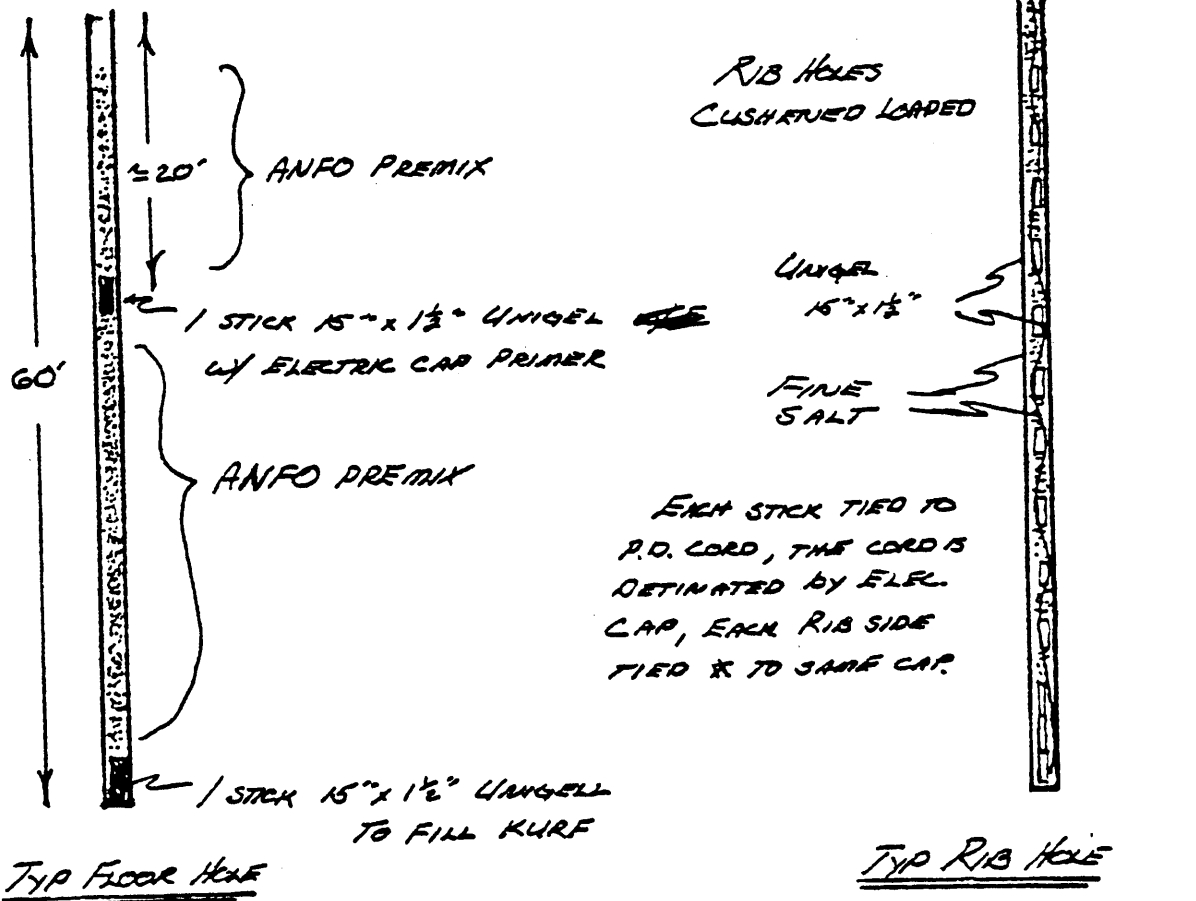 60'
≈20'
ANFO PREMIX
1 STICK 15" x 1½" UNIGEL
W/ ELECTRIC CAP PRIMER
ANFO PREMIX
1 STICK 15" x 1½" UNIGELL
TO FILL KURF
TYP FLOOR HOLE
RIB HOLES
CUSHENED LOADED
UNIGEL
15" x 1½"
FINE
SALT
EACH STICK TIED TO
P.D. CORD, THE CORD IS
DETINATED BY ELEC.
CAP, EACH RIB SIDE
TIED TO SAME CAP.
TYP RIB HOLE